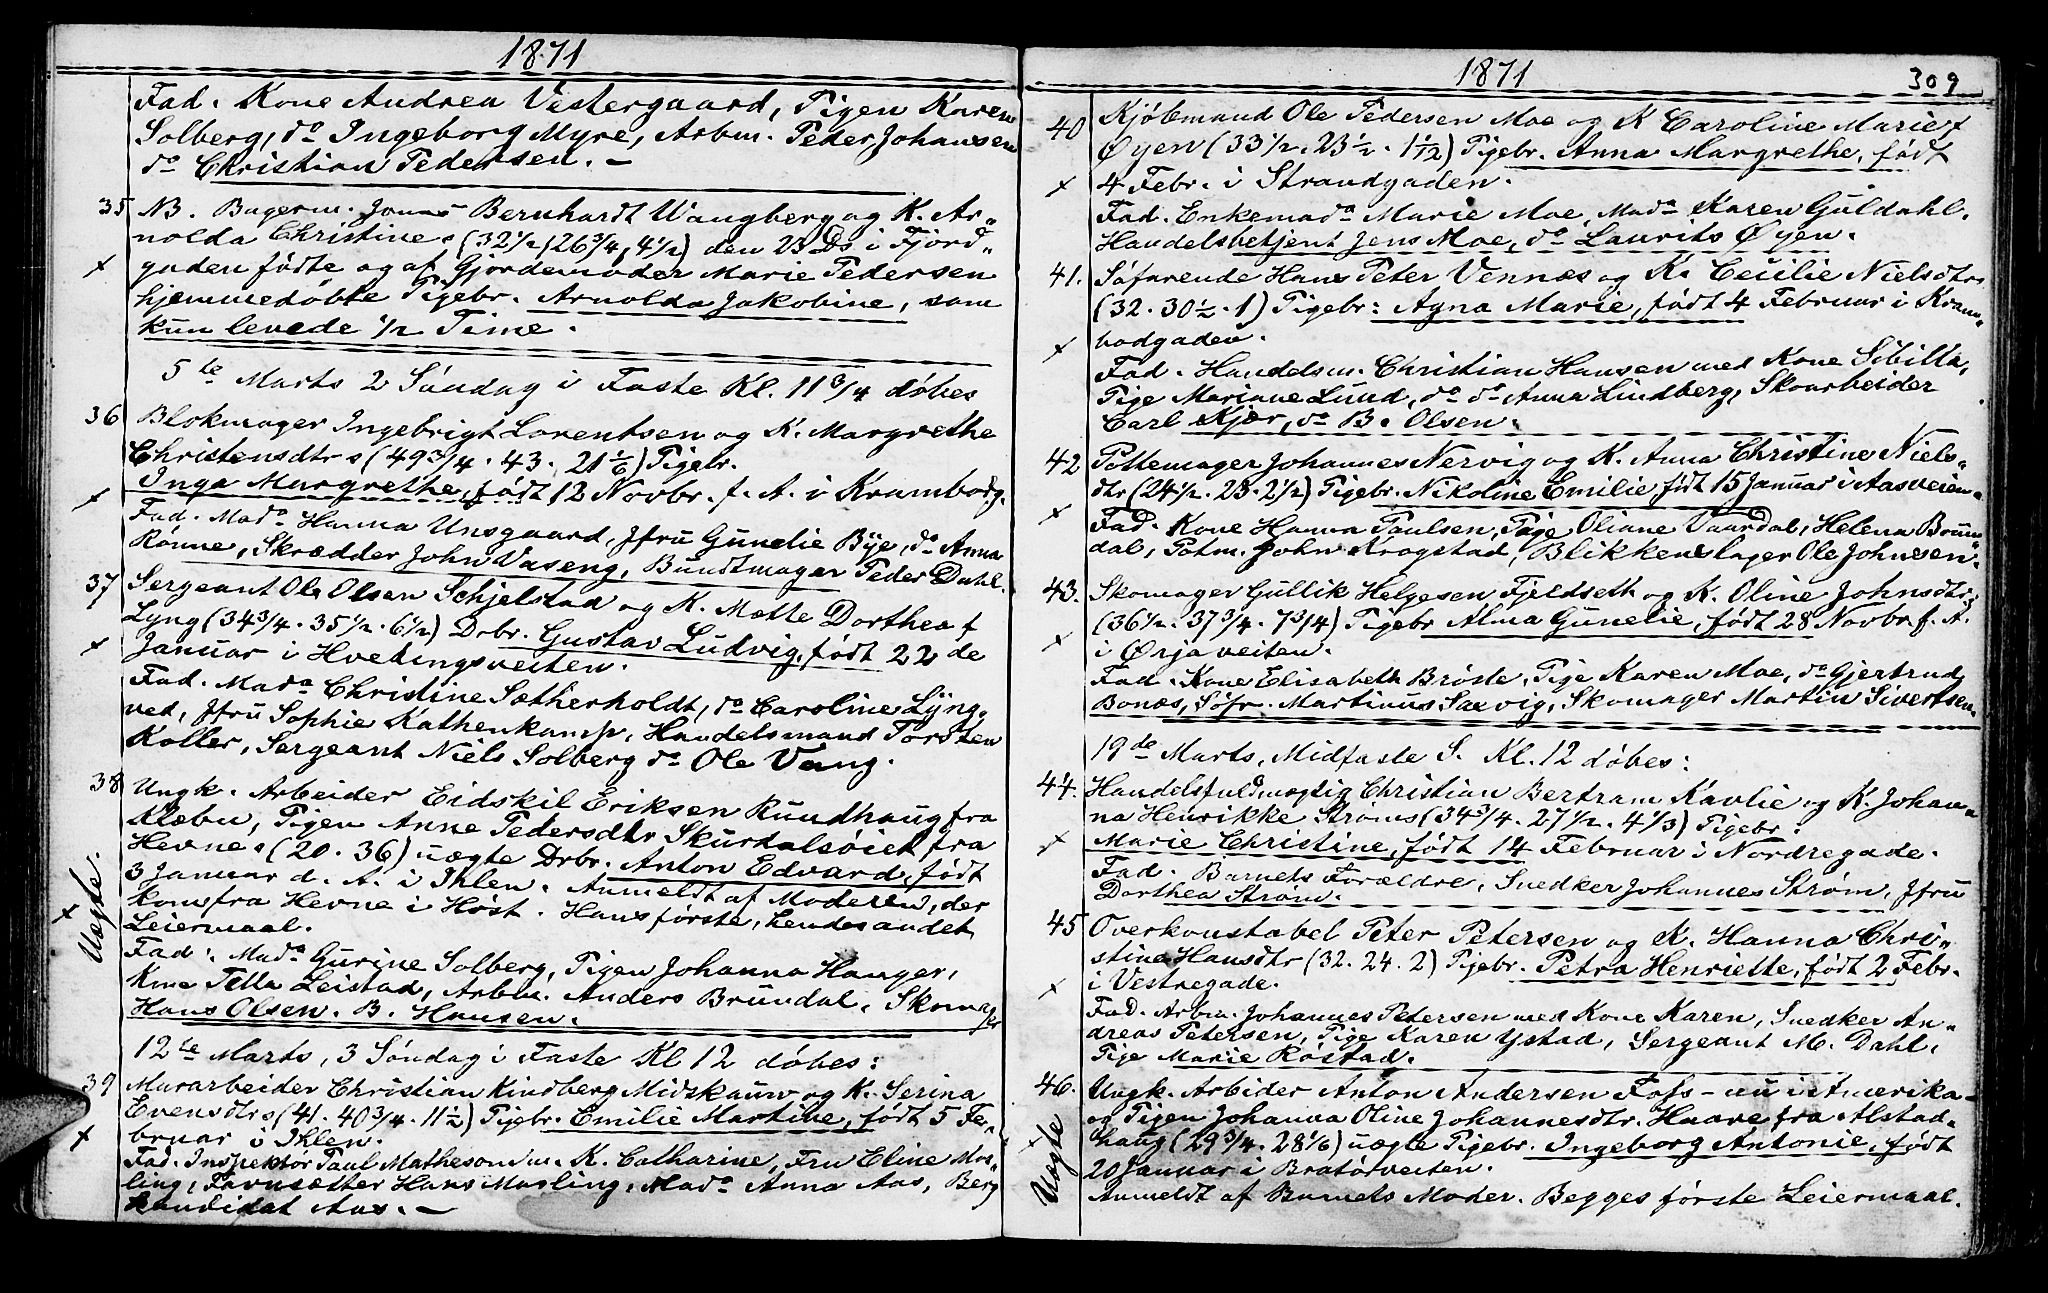 1871
Fad. Kone Andrea Vestergaard, Pigen Karen
Solberg, do Ingeborg Myre, Arbm. Peder Johansen
do Christian Pedersen. —
35 NB. Bagerm. Jonas Bernhardt Wangberg og K. Ar-
nolda Christines (32 1/2, 26 3/4, 4 1/2) den 23 Ds i Fjord-
gaden fødte og af Gjordemoder Marie Pedersen
x
hjemmedøbte Pigebr. Arnolda Jakobine, som
kun levede 1/2 Time.
5te Marts 2 Søndag i Faste Kl. 11 3/4 døbes
36 Blokmager Ingebrigt Lorentsen og K. Margrethe
Christensdtrs (49 3/4 . 43 . 21 1/6) Pigebr.
Inga Margrethe, født 12 Novbr. f. A. i Krambodg.
x
Fad. Mada Hanna Unsgaard, Jfru Gunelie Bye, do Anna
Rønne, Skrædder John Vaseng, Bundtmager Peder Dahl.
37 Sergeant Ole Olsen Schjelstad og K. Mette Dorthea f
Lyng (34 3/4 . 35 1/2 . 6 1/2) Drbr. Gustav Ludvig, født 22de
x Januar i Hvedingsveiten.
Fad. Mada Christine Sætherholdt, do Caroline Lyng-
vet, Jfru Sophie Kathenkamp, Handelsmand Torsten
Koller, Sergeant Niels Solberg do Ole Vang.
38 Ungk. Arbeider Eidskil Eriksen Rundhaug fra
Klæbu, Pigen Anne Pedersdtr Skurdalsøiet fra
Hevnes (20 . 36) uægte Drbr. Anton Edvard, født
3 Januar d. A. i Ihlen. Anmeldt af Moderen, der
x Uægte.
kom fra Hevne i Høst. Hans første, hendes andet
Leiermaal.
Fad. Mada Gurine Solberg, Pigen Johanna Hanger,
Kma Tella Leistad, Arbm. Anders Brundal, Skomager
Hans Olsen. B. Hansen.
12te Marts, 3 Søndag i Faste Kl 12 døbes:
39 Murarbeider Christian Kindberg Midskaun og K. Serina
Evensdtrs (41 . 40 3/4 . 11 1/2) Pigebr. Emilie Martine, født 5 Fe-
x bruar i Ihlen.
Fad. Inspektør Paul Matheson m. K. Catharine, Fru Eline Mos-
ling, Hans Mosling, Mada Anna Aas, Berg
kandidat Aas. —
1871 309
40 Kjøbmand Ole Pedersen Moe og K Caroline Marie f
Øyen (33 1/2 . 23 1/2 . 1 1/12) Pigebr. Anna Margrethe, født
x 4 Febr. i Strandgaden.
Fad. Enkemada Marie Moe, Mada Karen Guldahl.
Handelsbetjent Jens Moe, do Laurits Øyen.
41. Søfarende Hans Peter Vennæs og K. Cecilie Nielsdtrs
(32 . 30 1/2 . 1) Pigebr: Agna Marie, født 4 Februar i Kram-
x bodgaden.
Fad. Handelsm. Christian Hansen med Kone Sibilla,
Pige Mariane Lund, do do Anna Lindberg, Skoarbeider
Carl Kjær, do B. Olsen.
42 Pottemager Johannes Nervig og K. Anna Christine Niels-
dtr (24 1/2 . 23 . 2 1/2) Pigebr. Nikoline Emilie, født 15 Januar i Aasveien.
x
Fad. Kone Hanna Paulsen, Pige Oliane Vaardal, Helena Brun-
dal, Potm. John Krogstad, Blikkenslager Ole Johnsen.
43. Skomager Gullik Helgesen Fjeldseth og K. Oline Johnsdtrs
(36 1/2 . 37 3/4 . 7 3/4) Pigebr Alma Gunelie, født 28 Novbr f. A.
x i Ørjaveiten.
Fad. Kone Elisabeth Brøste, Pige Karen Moe, do Gjertrud
Bonæs, Søfr. Martinus Saxvig, Skomager Martin Sivertsen.
19de Marts, Midfaste S. Kl. 12 døbes:
44. Handelsfuldmægtig Christian Bertram Kavlie og K. Johan-
na Henrikke Strøms (34 3/4 . 27 1/2 . 4 1/3) Pigebr:
x Marie Christine, født 14 Februar i Nordregade.
Fad. Barnets Forældre, Snedker Johannes Strøm, Jfru
Dorthea Strøm.
45 Overkonstabel Peter Petersen og K. Hanna Chri-
stina Hansdtr (32 . 24 . 2) Pigebr. Petra Henriette, født 2 Febr.
x i Vestregade.
Fad. Arbm. Johannes Petersen med Kone Karen, Snedker An-
dreas Petersen, Pige Karen Ystad, Sergeant M. Dahl,
Pige Marie Røstad.
46. Ungk. Arbider Anton Andersen Foss - nu i Amerika -
og Pigen Johanna Oline Johannesdtr. Haave fra Alstad-
x Uægte
haug (29 3/4 . 28 1/6) uægte Pigebr. Ingeborg Antonie, født
20 Januar i Bratørveiten.
Anmeldt af Barnets Moder. Begges første Leiermaal.